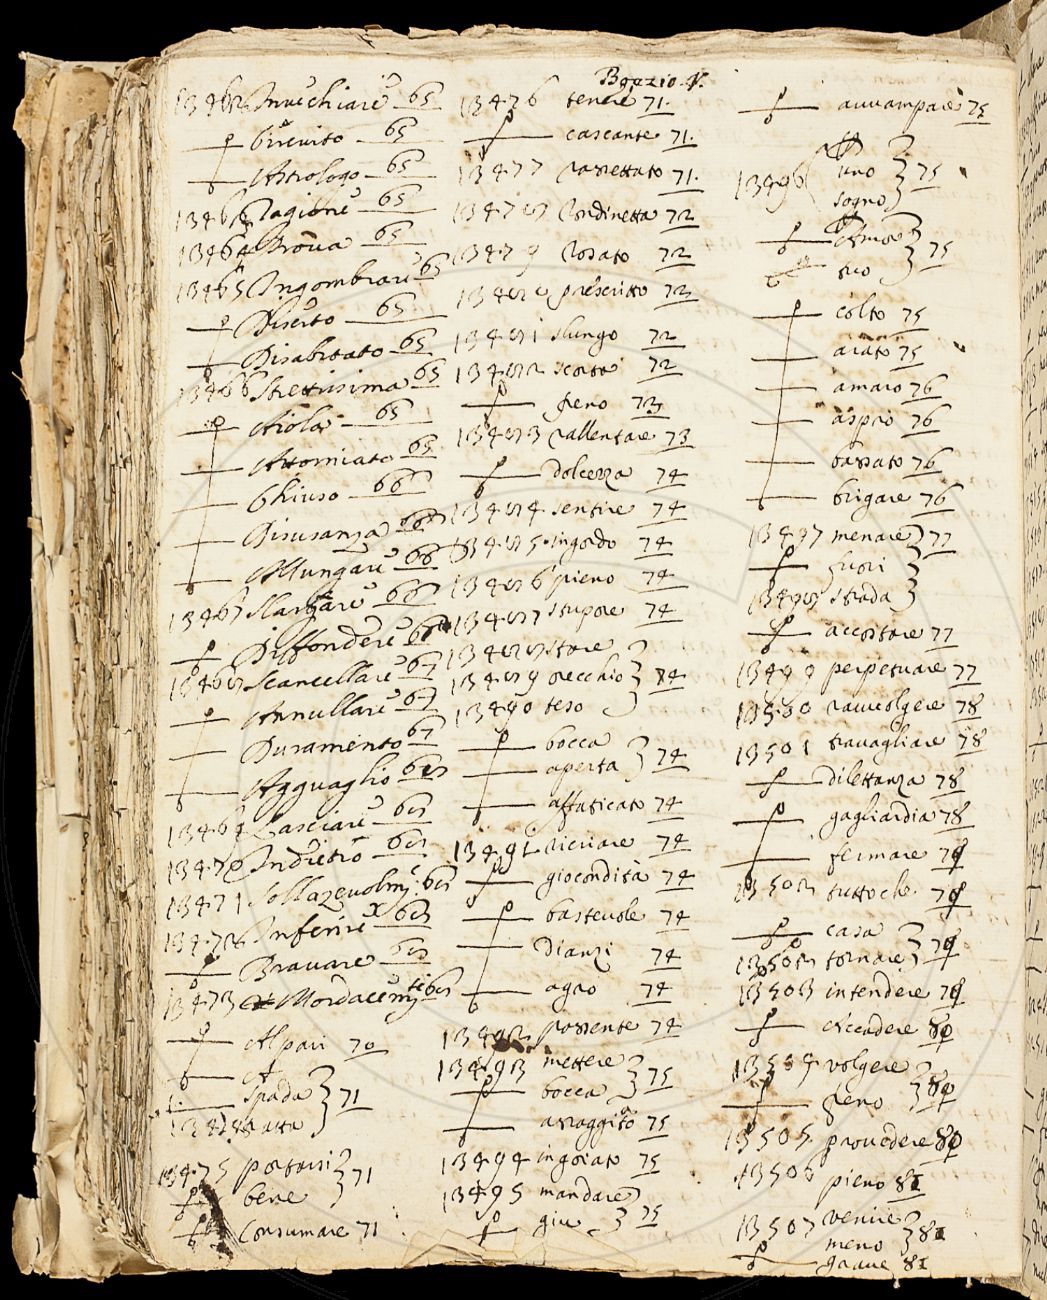 Boezio. V.
13462 Invechiare 65
Circuito 65
Astrologo 65
13463 Ragione 65
13464 Prova 65
13465 Ingombrare 65
Diserto 65
Disabitato 65
13466 Strettissima 65
Aiola 65
Attorniato 65
Chiuso 66
Disusanza 66
Allungare 66
13467 Slargare 66
Diffondere
13468 Scancellare 67
Annullare 67
Duramento 67
Agguaglio 68
13469 Lasciare 68
13470 Indietro 68
13471 Sollazevolm: 68
13472 Inferire 68
Bravare 68
13473 Mordacem 68
Al pari 70
A
Spada } 71
tratta
13475 portarsi } 71
bene
Consumare 71
13476 tenere 71.
cascante 71.
13477 rassettato 71.
13478 Rondinetta 72
13479 Rosato 72
13480 prescritto 72
13481 slungo 72
13482 scorta 72
freno 73
13483 rallentare 73
dolcezza 74
13484 sentire 74
13485 ingordo 74
13486 pieno 74
13487 stupore 74
13488 stare
13489 orecchio } 74
13490 teso
bocca
aperta } 74
affaticato 74
13491 ricriare 74
giocondità 74
bastevole 74
Dianzi 74
agro 74
13492 possente 74
13493 mettere
bocca } 75
assaggito 75
13494 ingoiato 75
13495 mandare
giu } 75
avvampare 75
13496 uno } 75
sogno
Amor } 75
tuo
colto 75
aiato 75
amaro 76
aspro 76
bassato 76
brigare 76
13497 menare } 77
fuori
13498 strada
accostare 77
13499 perpetuare 77
13500 ravvolgere 78
13501 travagliare 78
dilettanza 78
gagliardia 78
fermare 79
13502 tuttoche 79
casa } 79
13502 tornare
13503 intendere 79
eccedere 80
13504 volgere } 80
freno
13505 provedere 80
13506 pieno 81
13507 venire } 81
meno
grave 81